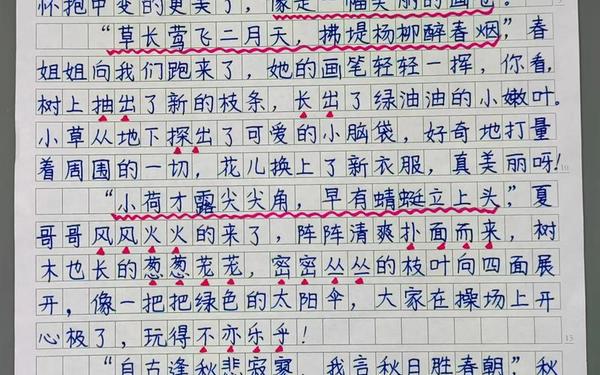 怀抱中变的更美了，像是一幅美丽的画卷。
“草长莺飞二月天，拂堤杨柳醉春烟，”春
姐姐向我们跑来了，她的画笔轻轻一挥，你看，
树上抽出了新的枝条，长出了绿油油的小嫩叶。
小草从地下探出了可爱的小脑袋，好奇地打量
着周围的一切，花儿换上了新衣服，真美丽呀！
10
“小荷才露尖尖角，早有蜻蜓立上头，”夏
哥哥风风火火的来了，阵阵清爽扑面而来，树
木也长的葱葱茏茏，密密丛丛的枝叶向四面展
开，像一把把绿色的太阳伞，大家在操场上开
心极了，玩得不亦乐乎！
15
“自古逢秋悲寂寥，我言秋日胜春朝”，秋